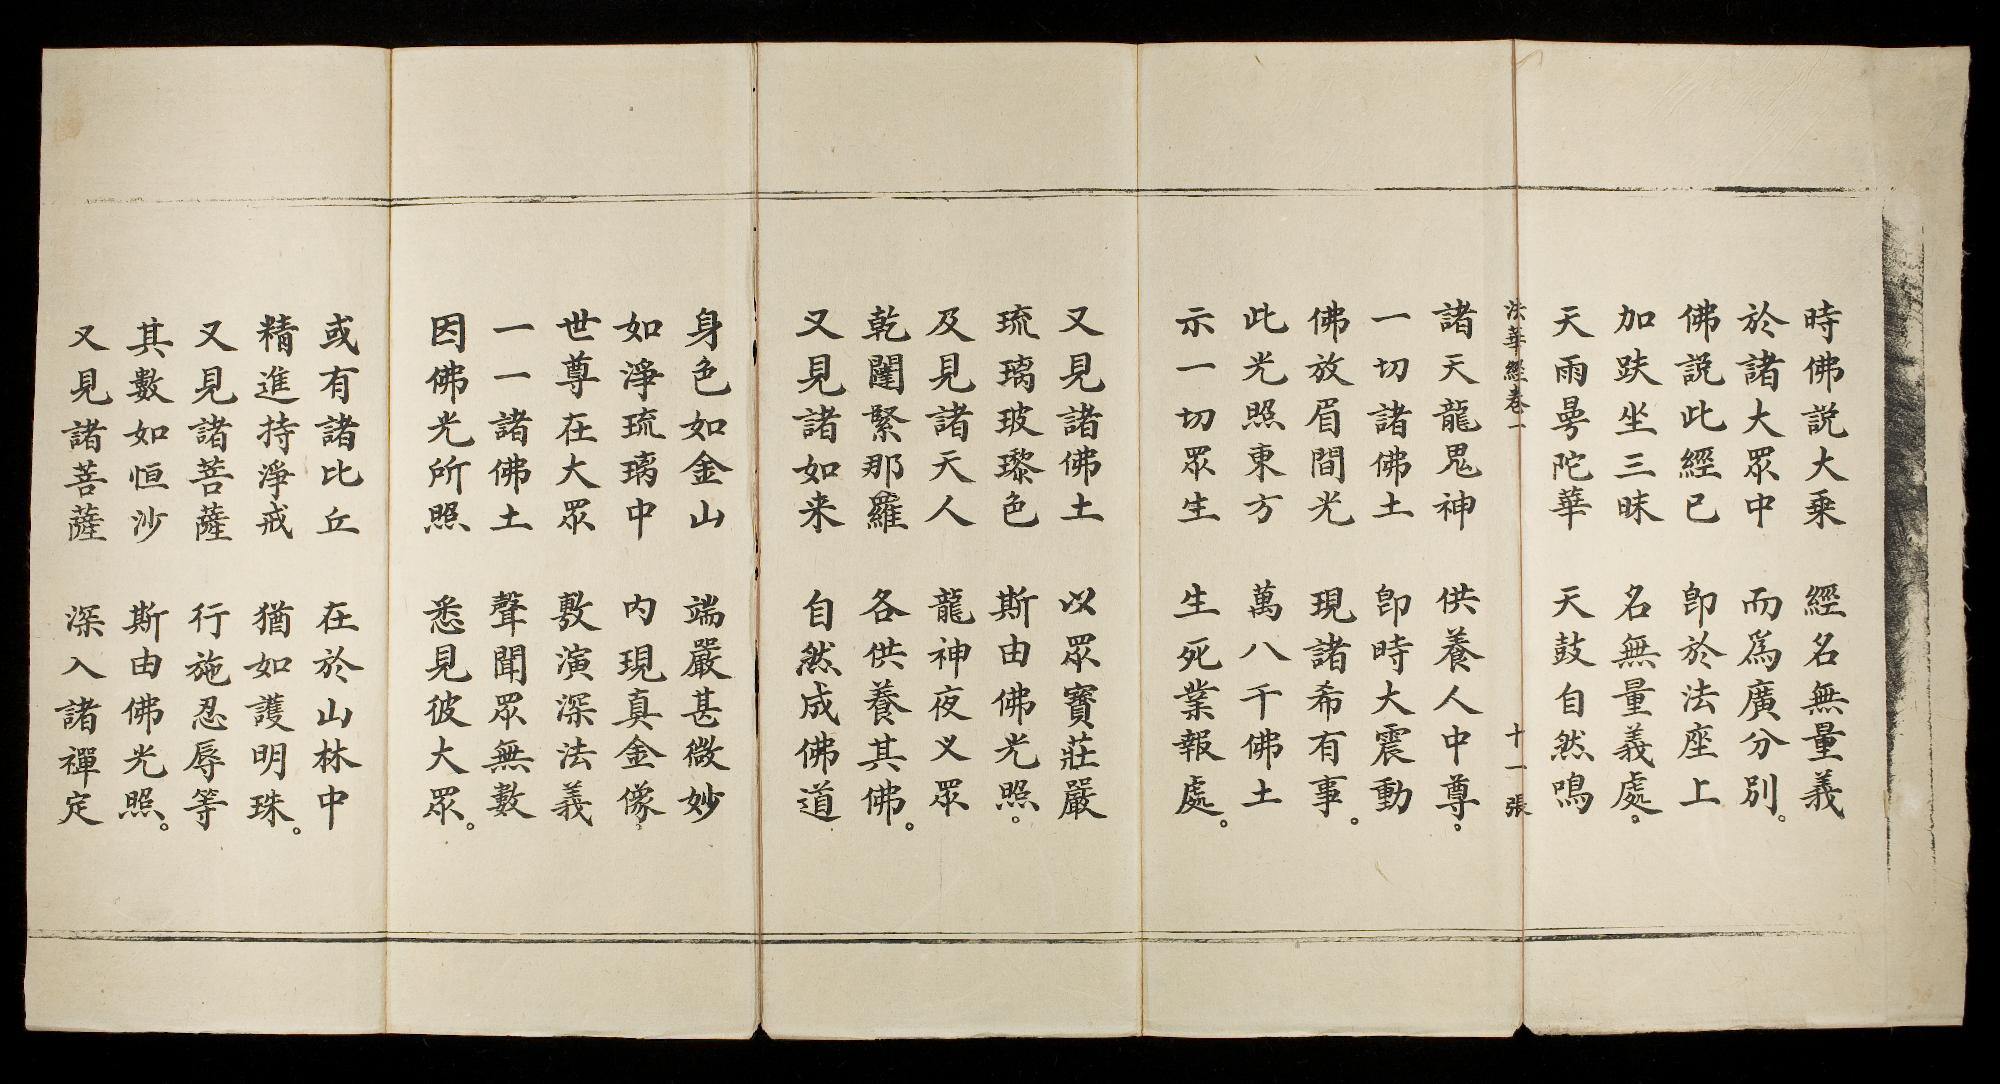 時佛説大乗　經名無量義
於諸大眾中　而爲廣分別。
佛説此經已　卽於法座上
加趺坐三昧　名無量義處。
天雨曼陀華　天鼓自然鳴
法華經卷一　十一張
諸天龍鬼神　供養人中尊。
一切諸佛土　卽時大震動
佛放眉間光　現諸希有事。
此光照東方　萬八千佛土
示一切眾生　生死業報處。
又見諸佛土　以眾寶莊嚴
琉璃玻瓈色　斯由佛光照。
及見諸天人　龍神夜义眾
乾闥緊那羅　各供養其佛。
又見諸如来　自然成佛道
身色如金山　端嚴甚微妙
如淨琉璃中　内現真金像。
世尊在大眾　敷演深法義
一一諸佛土　聲聞眾無數
因佛光所照　悉見彼大眾。
或有諸比丘　在於山林中
精進持淨戒　猶如護明珠。
又見諸菩薩　行施忍辱等
其數如恒沙　斯由佛光照。
又見諸菩薩　深入諸禪定